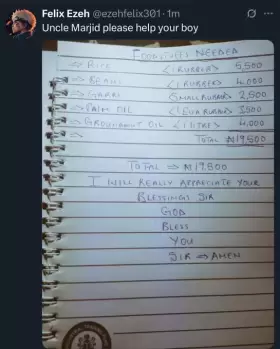 Felix Ezeh @ezehfelix301 · 1m
Uncle Marjid please help your boy
FOODSTUFFS NEEDED
⇒ RICE <1 RUBBER> 5,500
⇒ BEANS <1 RUBBER> 4,000
⇒ GARRI <SMALL RUBBER> 2,500
⇒ PALM OIL 3,500
⇒ GROUNDNUT OIL <1 LITRE> 4,000
⇒ TOTAL ₦19,500
TOTAL ⇒ ₦19,500
I WILL REALLY APPRECIATE YOUR
BLESSINGS SIR
GOD
BLESS
YOU
SIR ⇒ AMEN